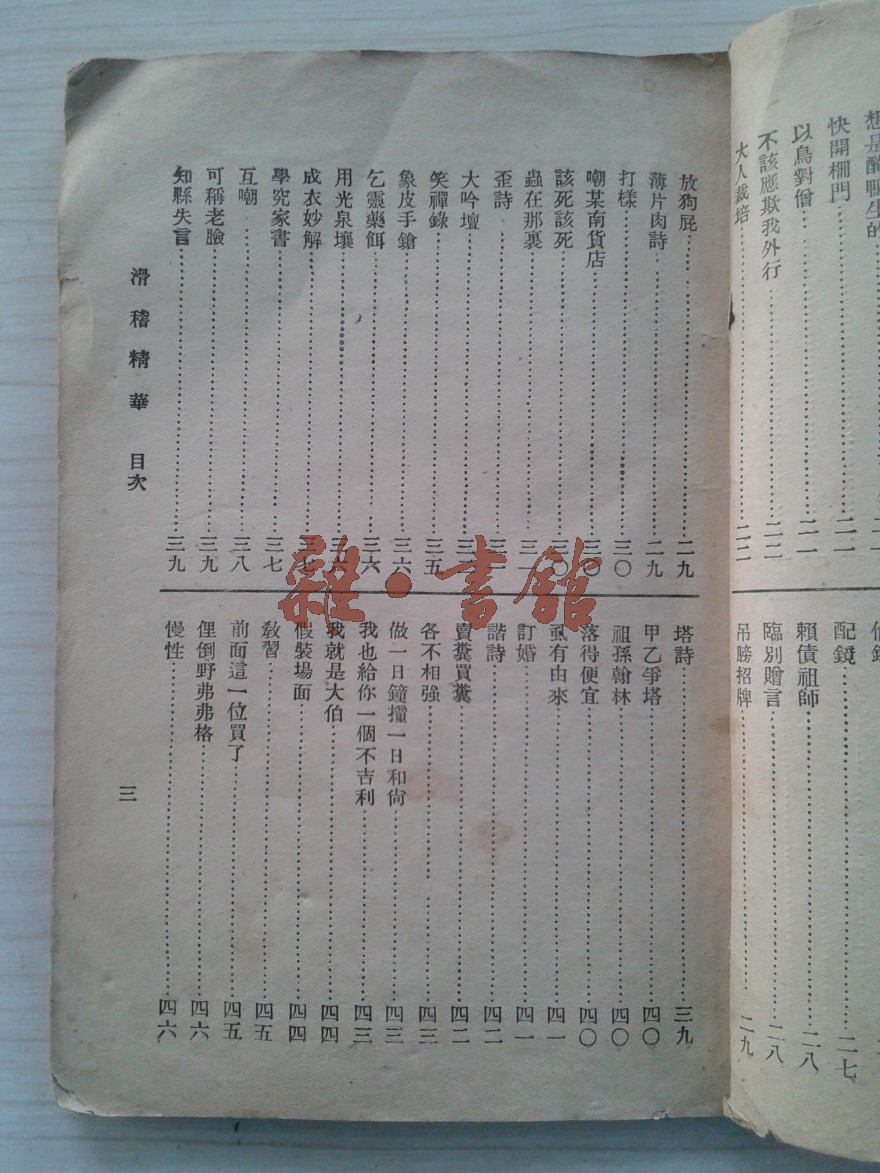 快開柵門……二一
以鳥對僧……二一
不該應欺我外行……二二
大人栽培……二二
配鏡……二七
賴債祖師……二八
臨別贈言……二八
吊膀招牌……二九
放狗屁……二九
薄片肉詩……二九
打樣……三〇
嘲某南貨店……三〇
該死該死……三〇
蟲在那裏……三一
歪詩……三一
大吟壇
笑禪錄……三五
象皮手鎗……三六
乞靈藥餌……三六
用光泉壤……三六
成衣妙解……三七
學究家書……三七
互嘲……三八
可稱老臉……三九
知縣失言……三九
塔詩……三九
甲乙爭塔……四〇
祖孫翰林……四〇
落得便宜……四〇
虱有由來……四一
訂婚……四一
諧詩……四二
賣糞買糞……四二
各不相強……四三
做一日鐘撞一日和尙……四三
我也給你一個不吉利……四三
我就是大伯……四四
假裝場面……四四
敎習……四五
前面這一位買了……四五
俚倒野弗弗格……四六
慢性……四六
滑稽精華 目次
三
雜·書館